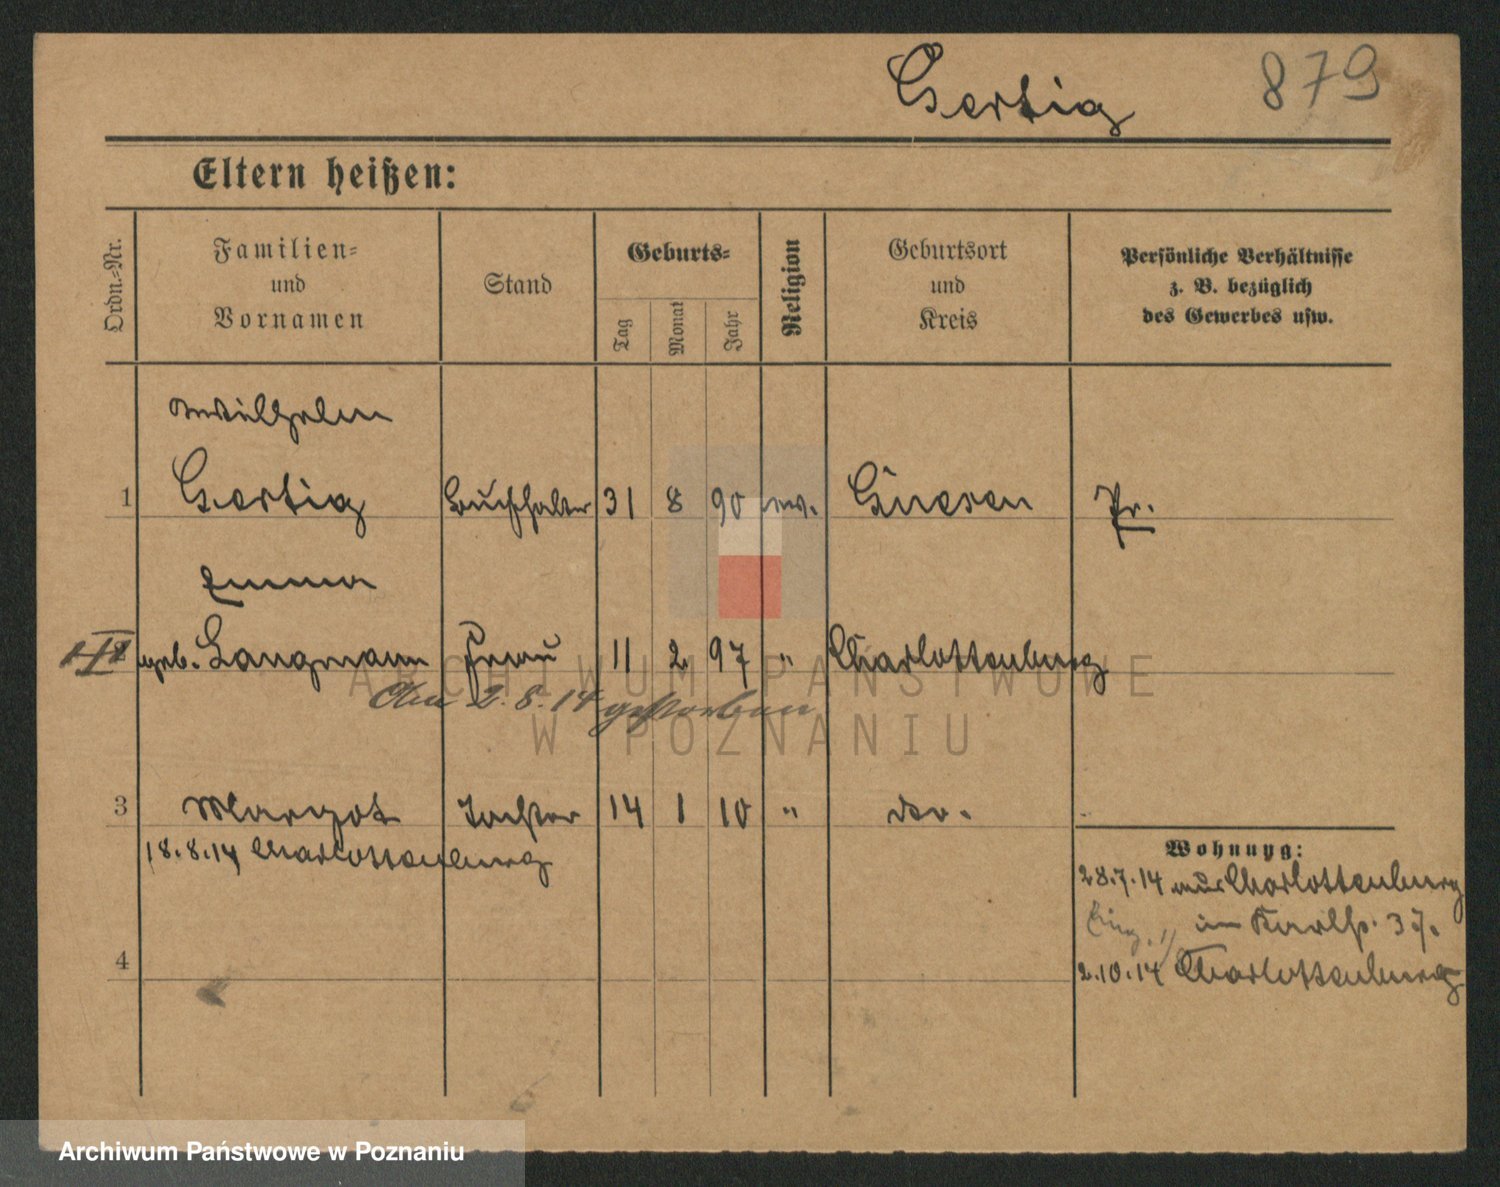 Gertig 879
Eltern heißen:
Ordn.-Nr.
Familien-
und
Vornamen
Stand
Geburts-
Tag
Monat
Jahr
Religion
Geburtsort
und
Kreis
Persönliche Verhältnisse
z. B. bezüglich
des Gewerbes usw.
Wilhelm
1 Gertig Buchhalter 31 8 90 ev. Gnesen Pr.
Emma
geb. Langmann Frau 11 2 97 " Charlottenburg
Am 2.8.14 gestorben
3 Margot Tochter 14 1 10 " do.
18.8.14 Charlottenburg
Wohnung:
28.7.14 aus Charlottenburg
in Karlst. 37.
4
2.10.14 Charlottenburg
ARCHIWUM PAŃSTWOWE
W POZNANIU
Archiwum Państwowe w Poznaniu